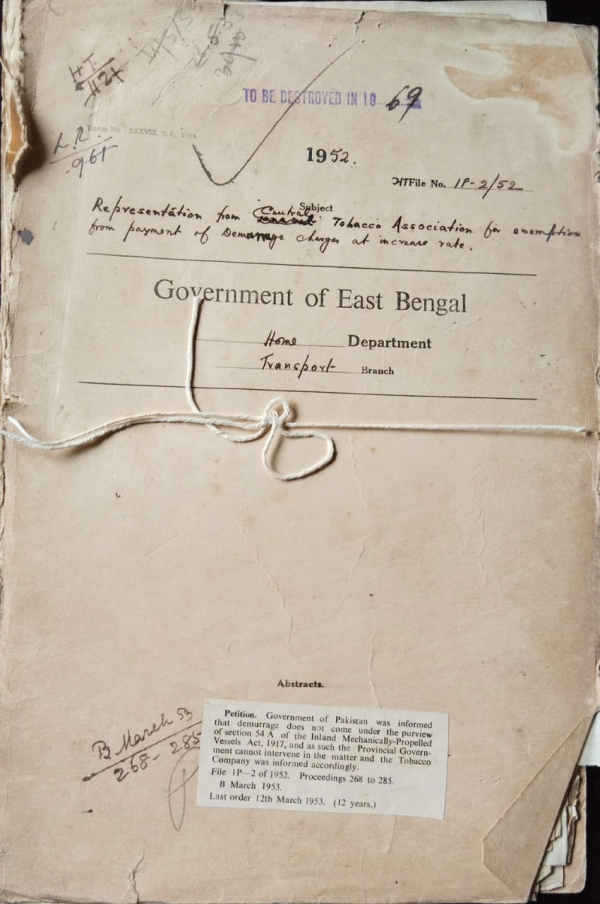 H.T.
421
TO BE DESTROYED IN 19 69
Form No. XXXVIII
L.R.
961
1952.
HT File No. 1P-2/52
Subject
Representation from Central Tobacco Association for exemption
from payment of Demurrage charges at increase rate.
Government of East Bengal
Home Department
Transport Branch
Abstracts.
B March 53
268-285
Petition. Government of Pakistan was informed
that demurrage does not come under the purview
of section 54 A of the Inland Mechanically-Propelled
Vessels Act, 1917, and as such the Provincial Govern-
ment cannot intervene in the matter and the Tobacco
Company was informed accordingly.
File 1P—2 of 1952. Proceedings 268 to 285.
B March 1953.
Last order 12th March 1953. (12 years.)